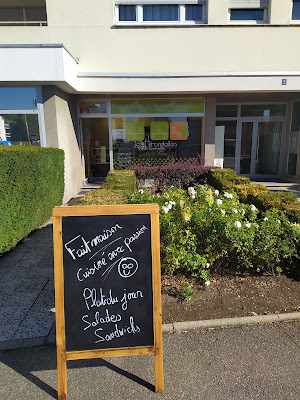 Fait maison
Cuisiné avec passion
Plat du jour
Salades
Sandwichs